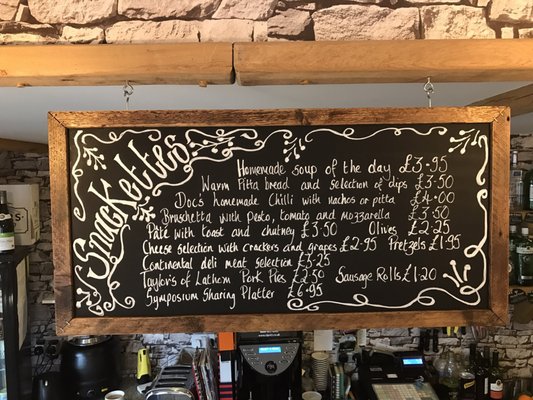 Snackettes
Homemade soup of the day £3·95
Warm Pitta bread and selection of dips £3·50
Doc's homemade Chilli with nachos or pitta £4·00
Bruschetta with pesto, tomato and mozzarella £3·50
Pâté with toast and chutney £3·50 Olives £2·25
Cheese selection with crackers and grapes £2·95 Pretzels £1·95
Continental deli meat selection £5·25
Taylors of Lathom Pork Pies £2·50 Sausage Rolls £1·20
Symposium Sharing Platter £6·95